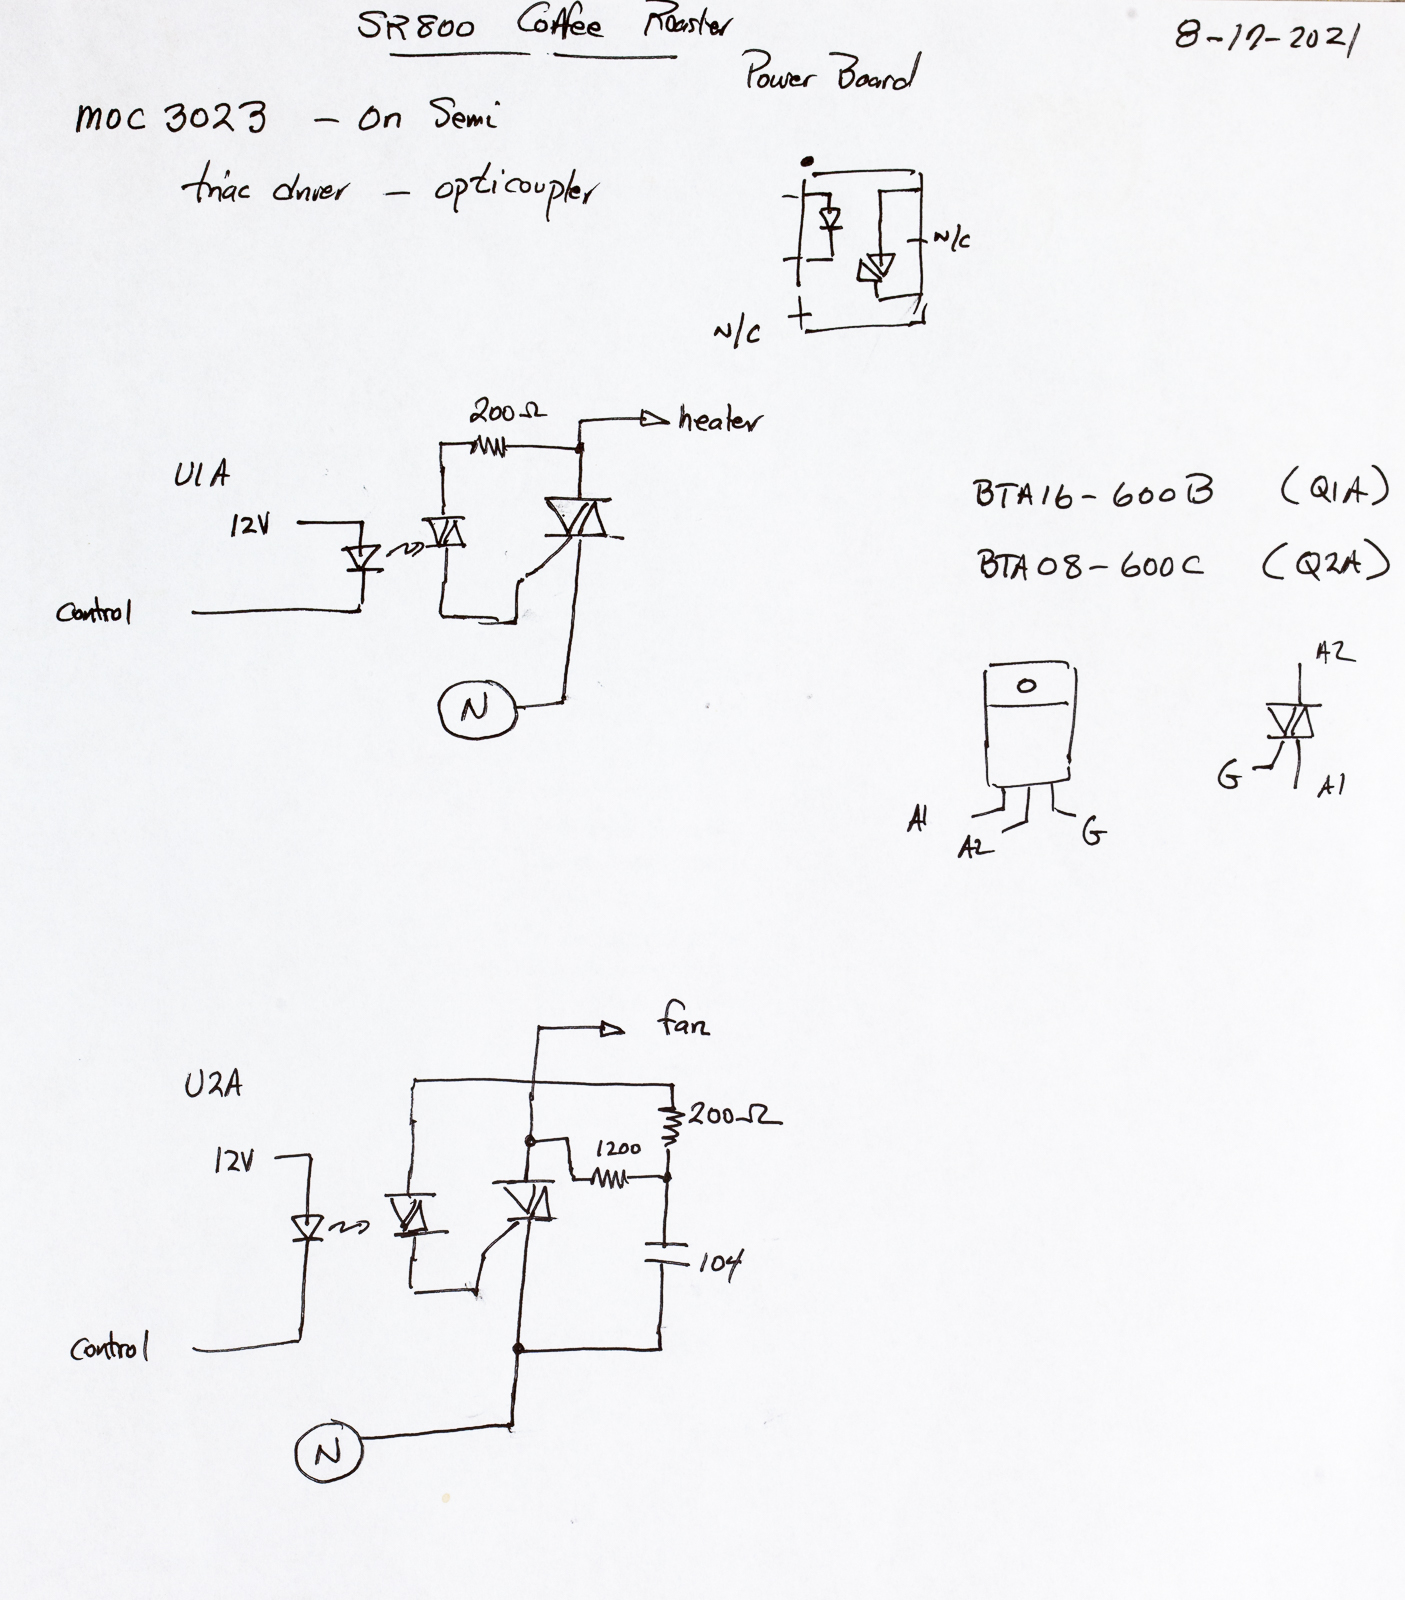 SR800 Coffee Roaster
8-17-2021
Power Board
MOC 3023 - On Semi
triac driver - opticoupler
N/C
N/C
200Ω
heater
U1A
12V
Control
N
BTA16-600B (Q1A)
BTA08-600C (Q2A)
A2
G
A1
A1
A2
G
fan
U2A
200Ω
1200
12V
104
Control
N